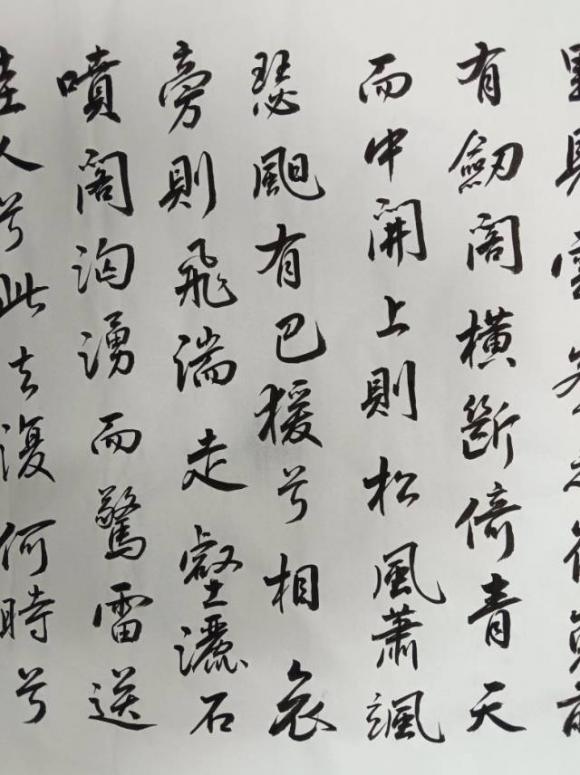 里見雲峯之崔嵬前
有劔閣橫斷倚青天
而中開上則松風蕭颯
瑟䬍有巴猨兮相哀
旁則飛湍走壑灑石
噴閣洶湧而驚雷送
佳人兮此去復何時兮